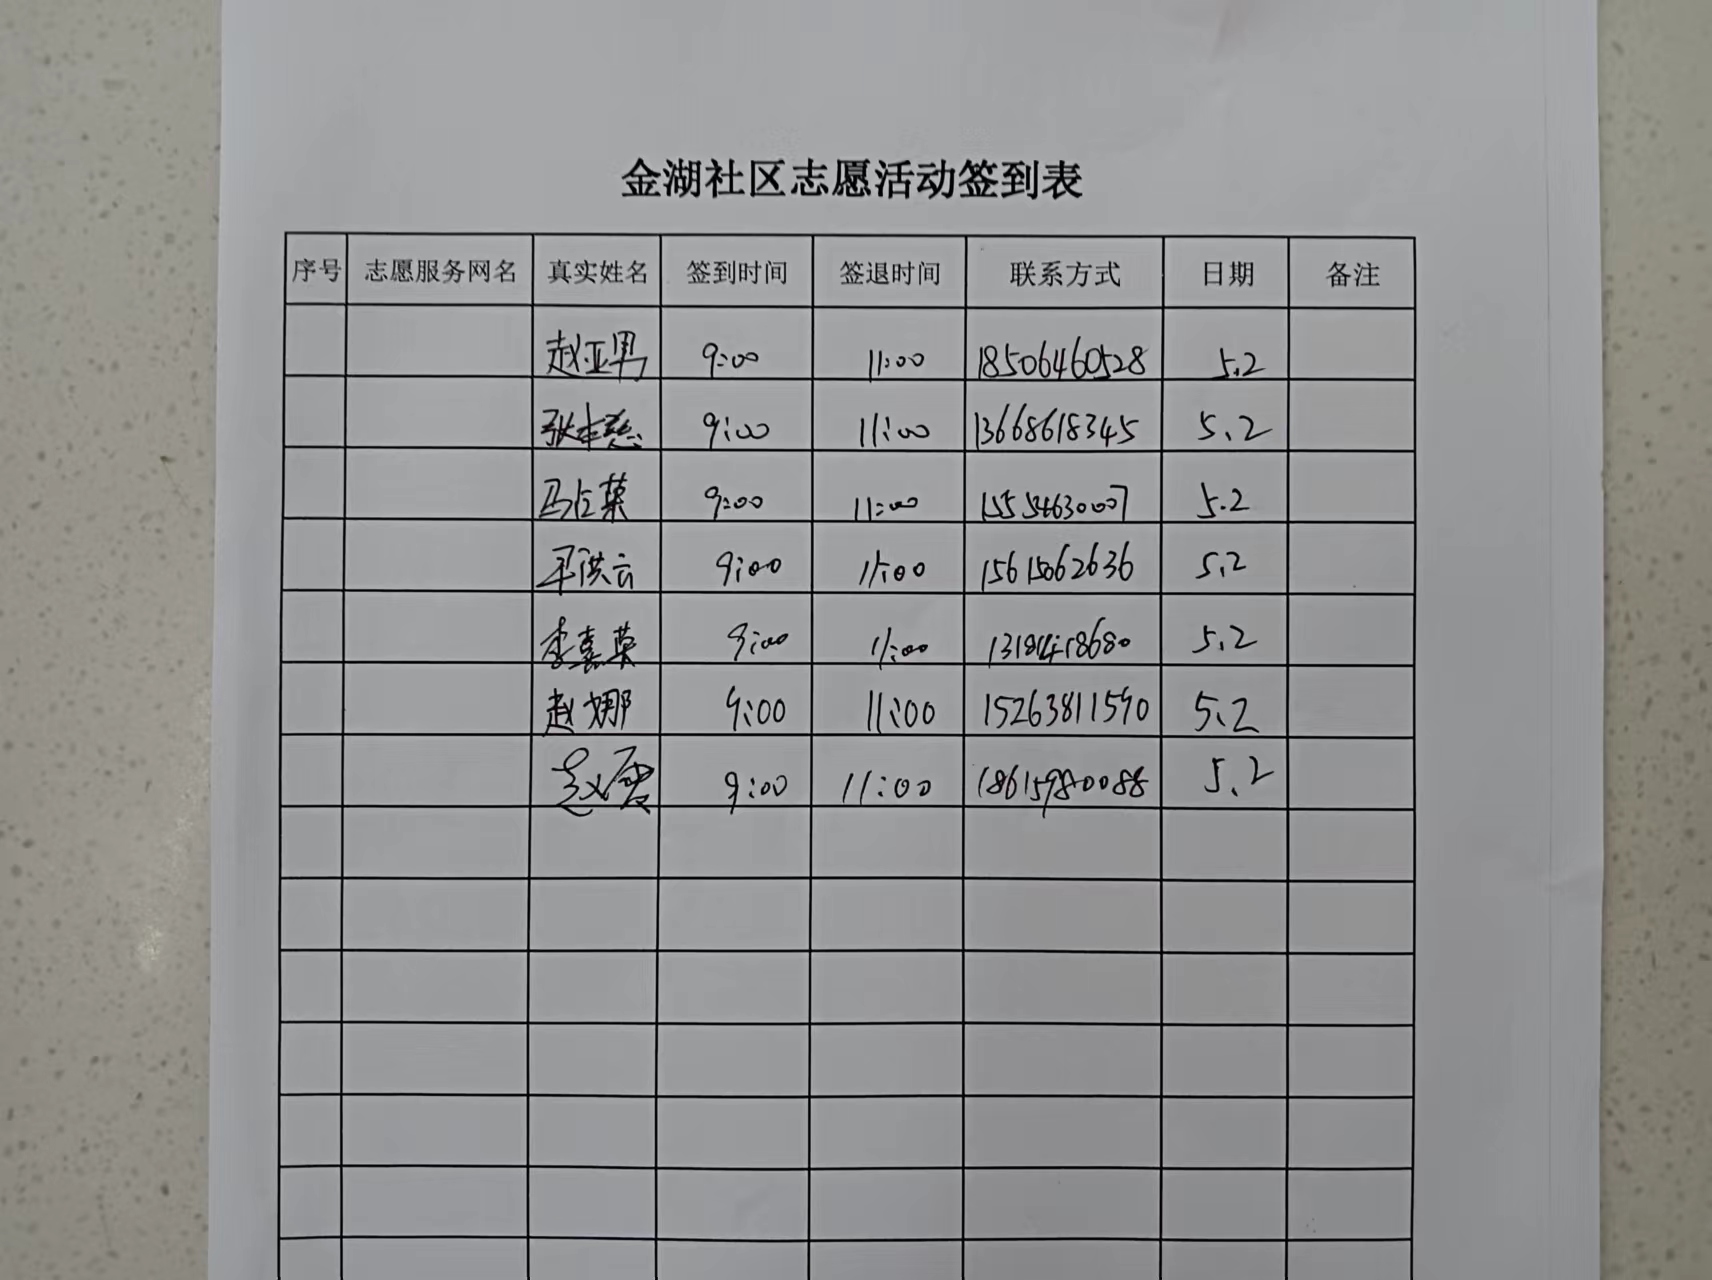 金湖社区志愿活动签到表
序号 志愿服务网名 真实姓名 签到时间 签退时间 联系方式 日期 备注
赵亚男 9:00 11:00 18506460528 5.2
张 9:00 11:00 13668618345 5.2
马 9:00 11:00 15554630007 5.2
洪云 9:00 11:00 15615062636 5.2
李嘉荣 9:00 11:00 5.2
赵娜 9:00 11:00 15263811590 5.2
赵震 9:00 11:00 5.2